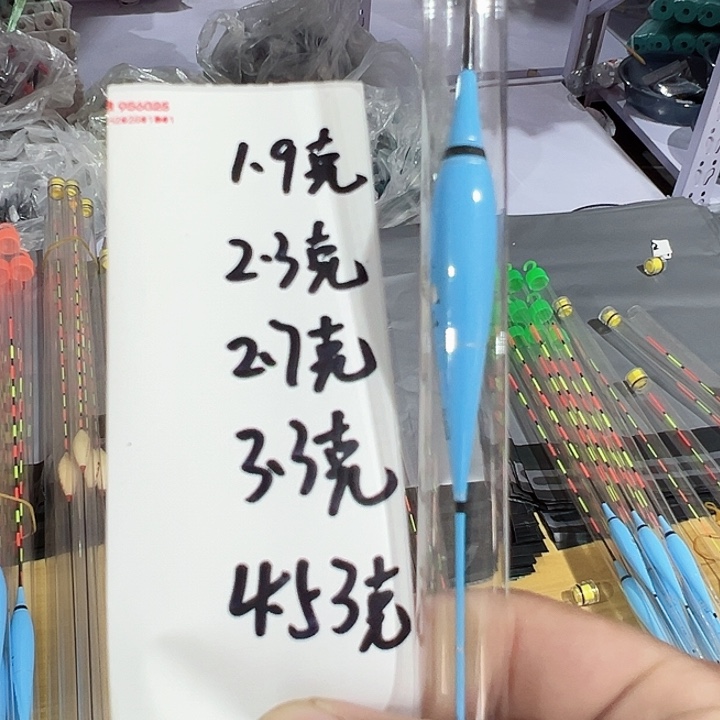 986025
1.9克
2.3克
2.7克
3.3克
4.53克